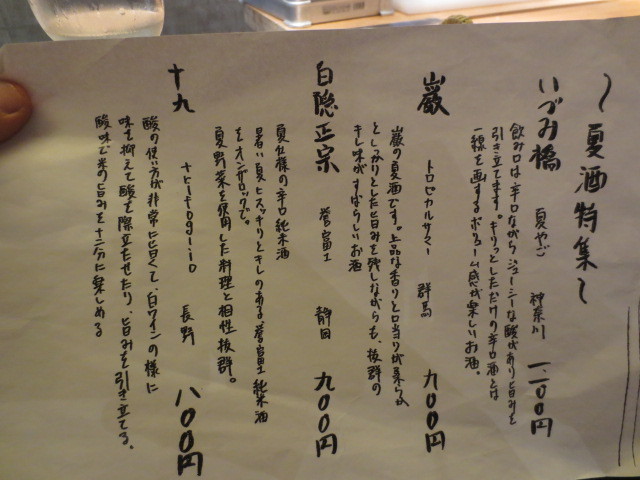 〜夏酒特集〜
いづみ橋 夏やご 神奈川 一、二〇〇円
飲み口は辛口ながらジューシーな酸があり旨みを
引き立てます。キリっとしただけの辛口酒とは
一線を画するボリューム感が楽しいお酒。
巖 トロピカルサマー 群馬 九〇〇円
巖の夏酒です。上品な香りと口当りが柔らか
としっかりとした旨みを残しながらも、抜群の
キレ味がすばらしいお酒
白隠正宗 誉富士 静岡 九〇〇円
夏仕様の辛口純米酒
暑い夏にスッキリとキレのある誉富士純米酒
をオンザロックで。
夏野菜を使用した料理と相性抜群。
十九 trifogilio 長野 八〇〇円
酸の使い方が非常に旨くて、白ワインの様に
味を抑えて酸を際立たせたり、旨みを引き立てる、
酸味で米の旨みを十二分に楽しめる